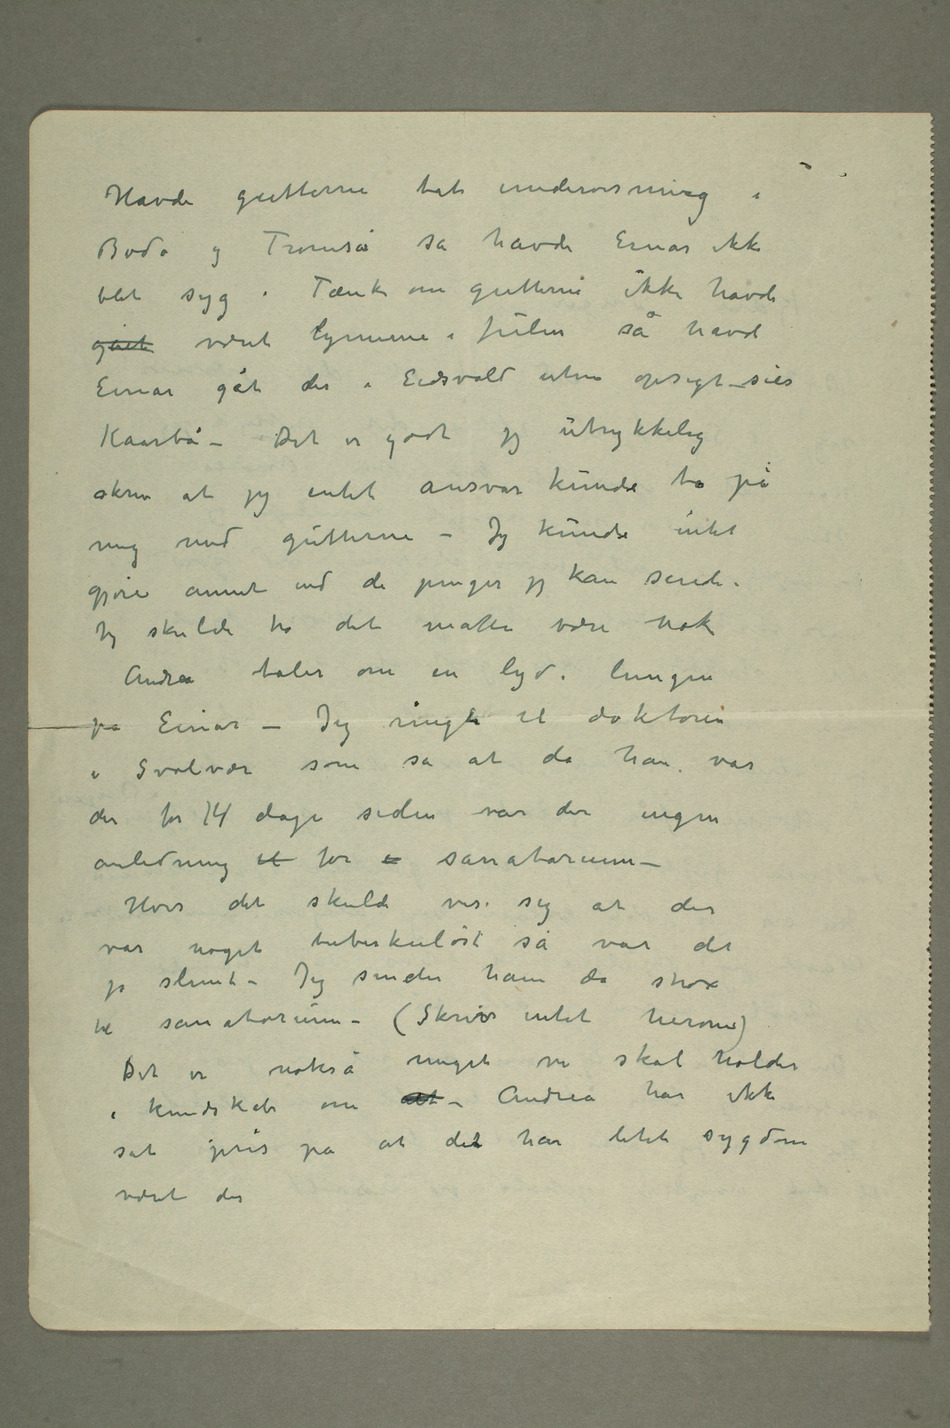 Havde gutterne tat undervisning i
Bodø og Tromsø sa havde Einar ikke
blit syg. Tænk om gutterne ikke havde
gået været hjemme i julen så havde
Einar gåt der i Eidsvold uten opsigt – sier
Kaarbø – Det er godt jeg utrykkelig
skrev at jeg intet ansvar kunde ta på
mig med gutterne – Jeg kunde intet
gjøre annet end de penger jeg kan sende.
Jeg skulde tro det måtte være nok
Andrea taler om en lyd i lungen
på Einar – Jeg ringte til doktoren
i Svolvær som sa at da han var
der for 14 dage siden var der ingen
anledning til for sanatorium –
Hvis det skulde vise sig at der
var noget tuberkuløst så var det
jo slemt – Jeg sender ham da strax
til sanatorium – (Skriv intet herom)
Det er nokså meget vi skal holdes
i kundskab om alt – Andrea har ikke
sat pris på at det har litet sygdom
været der